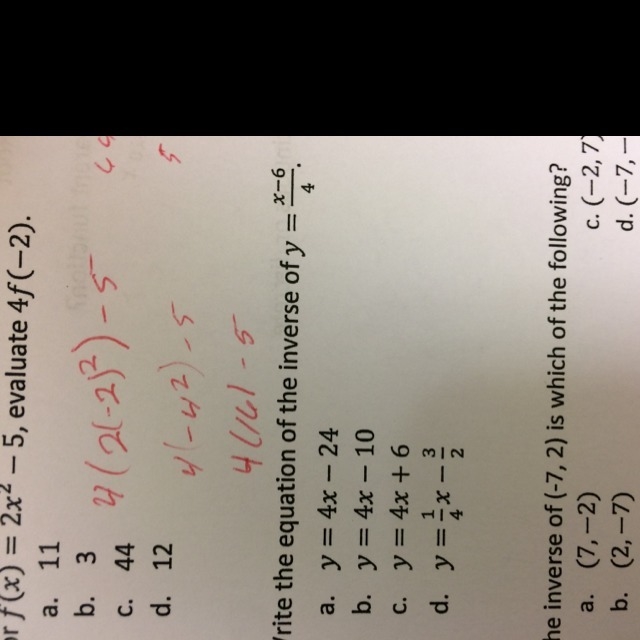 r f(x) = 2x² − 5, evaluate 4f(−2).
a. 11
b. 3
c. 44
d. 12
4(2(-2)²) - 5
4(-4²) - 5
4(16) - 5
5
rite the equation of the inverse of y = x−6/4.
a. y = 4x − 24
b. y = 4x − 10
c. y = 4x + 6
d. y = 1/4x − 3/2
he inverse of (-7, 2) is which of the following?
a. (7, −2)
b. (2, −7)
c. (−2, 7)
d. (−7, −